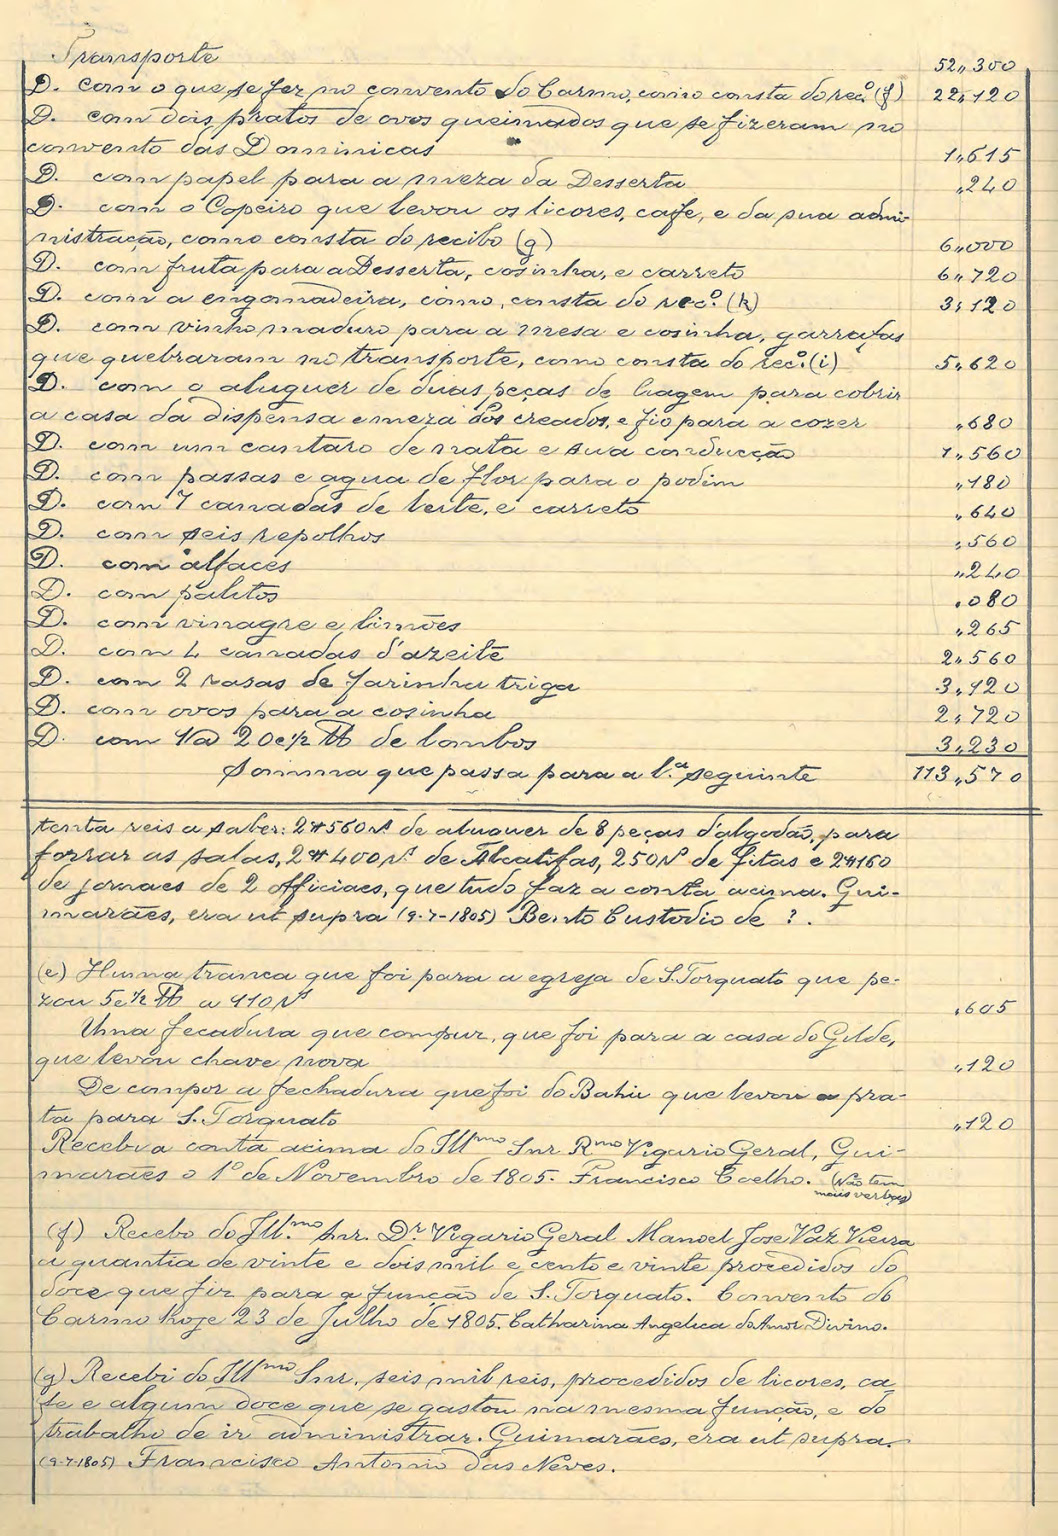 Transporte 52,,300
D. com o que se fez no convento do Carmo, como consta do rec.º (f) 22,,120
D. com dois pratos de ovos queimados que se fizeram no
convento das Dominicas 1,,615
D. com papel para a meza da Desserta ,,240
D. com o Copeiro que levou os licores, cafe, e da sua admi-
nistração, como consta do recibo (g) 6,,000
D. com fruta para a Desserta, cosinha, e carreto 6,,720
D. com a engomadeira, como, consta do rec.º (h) 3,,120
D. com vinho maduro para a mesa e cosinha, garrafas
que quebraram no transporte, como consta do rec.º (i) 5,,620
D. com o aluguer de duas peças de liagem para cobrir
a casa da dispensa e meza dos creados, e fio para a cozer ,,680
D. com um cantaro de nata e sua conducção 1,,560
D. com passas e agua de flor para o podim ,,180
D. com 7 canadas de leite, e carreto ,,640
D. com seis repolhos ,,560
D. com alfaces ,,240
D. com palitos ,,080
D. com vinagre e limões ,,265
D. com 4 canadas d'azeite 2,,560
D. com 2 rasas de farinha triga 3,,120
D. com ovos para a cosinha 2,,720
D. com 1@ 20 e ½ ℔ de lombos 3,,230
Somma que passa para a l.ª seguinte 113,,570
tenta reis a saber: 2#560rs de aluguer de 8 peças d'algodão, para
forrar as salas, 2#400rs de Alcatifas, 250rs de fitas e 2#160
de jornaes de 2 officiaes, que tudo faz a conta acima. Gui-
marães, era ut supra (9-7-1805) Bento Custodio de ? .
(e) Huma tranca que foi para a egreja de S. Torquato que pe-
zou 5 e ½ ℔ a 110rs ,,605
Uma fecadura que compuz, que foi para a casa do Gilde,
que levou chave nova ,,120
De compor a fechadura que foi do Bahu que levou a pra-
ta para S. Torquato ,,120
Recebi a conta acima do Illmo Snr Rmo Vigario Geral, Gui-
marães o 1º de Novembro de 1805. Francisco Coelho. (Não tem
mais verbas)
(f) Recebo do Ill.mo Snr. Dr Vigario Geral Manoel Jose Vaz Vieira
a quantia de vinte e dois mil e cento e vinte procedidos do
doce que fiz para a função de S. Torquato. Convento do
Carmo hoje 23 de Julho de 1805. Catharina Angelica do Amor Divino.
(g) Recebi do Illmo Snr. seis mil reis, procedidos de licores, ca-
fe e algum doce que se gastou na mesma função, e do
trabalho de ir administrar. Guimarães, era ut supra.
(9-7-1805) Francisco Antonio das Neves.